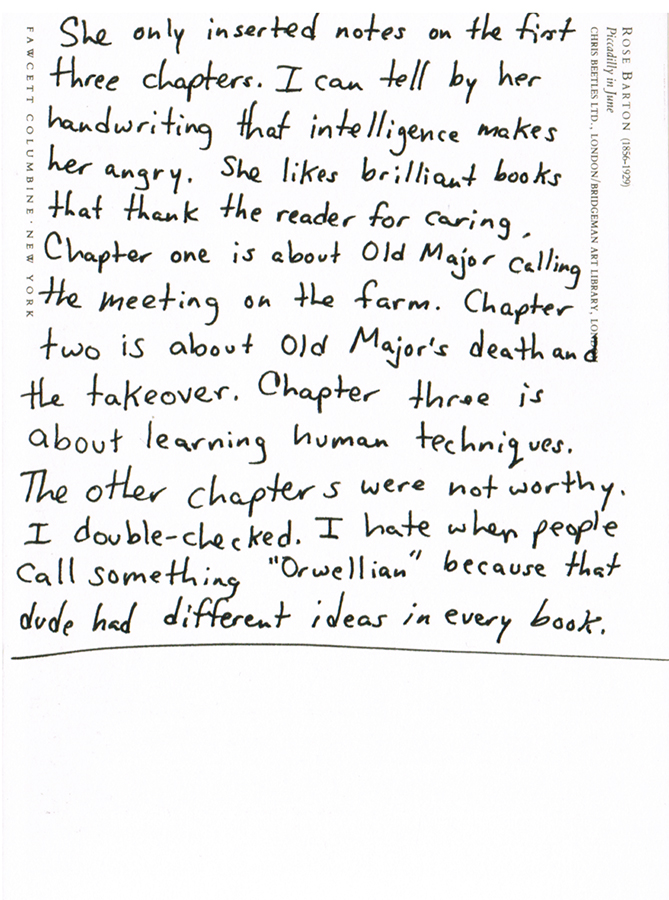 She only inserted notes on the first
three chapters. I can tell by her
handwriting that intelligence makes
her angry. She likes brilliant books
that thank the reader for caring.
Chapter one is about Old Major calling
the meeting on the farm. Chapter
two is about Old Major's death and
the takeover. Chapter three is
about learning human techniques.
The other chapters were not worthy.
I double-checked. I hate when people
call something "Orwellian" because that
dude had different ideas in every book.
FAWCETT COLUMBINE · NEW YORK
ROSE BARTON (1856-1929)
Piccadilly in June
CHRIS BEETLES LTD., LONDON/BRIDGEMAN ART LIBRARY,